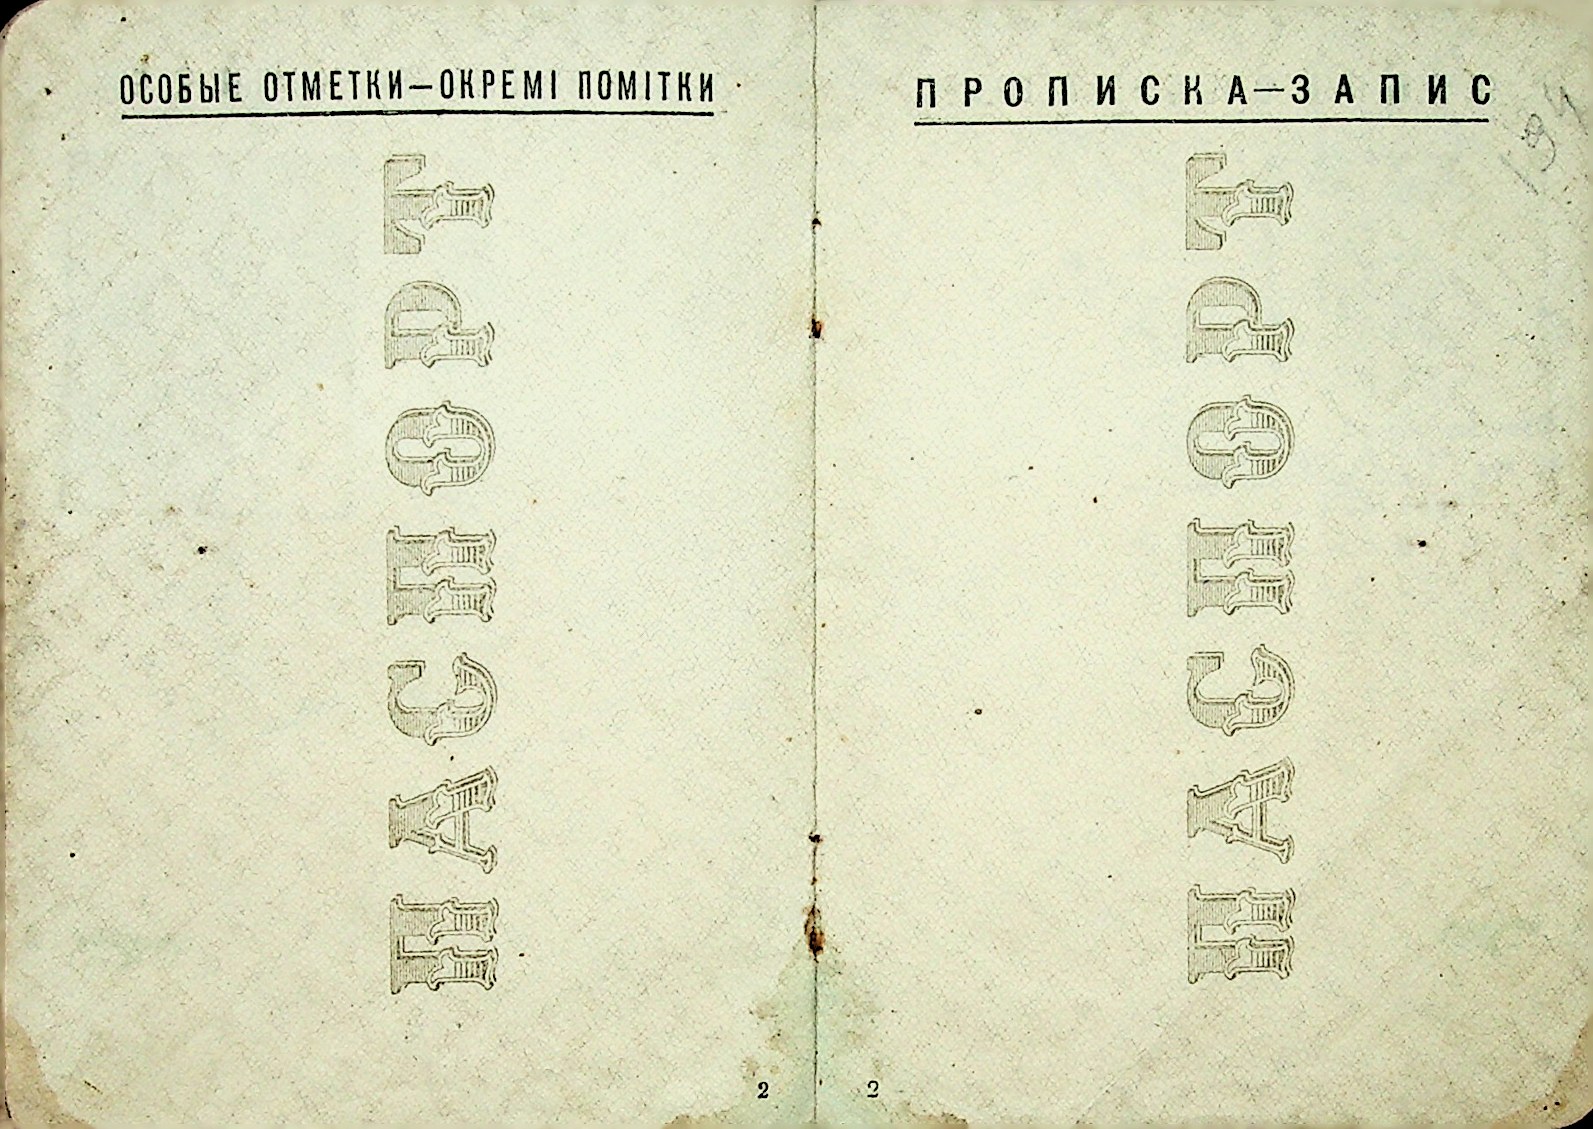 ОСОБЫЕ ОТМЕТКИ—ОКРЕМІ ПОМІТКИ
ПАСПОРТ
2
ПРОПИСКА—ЗАПИС
194
ПАСПОРТ
2